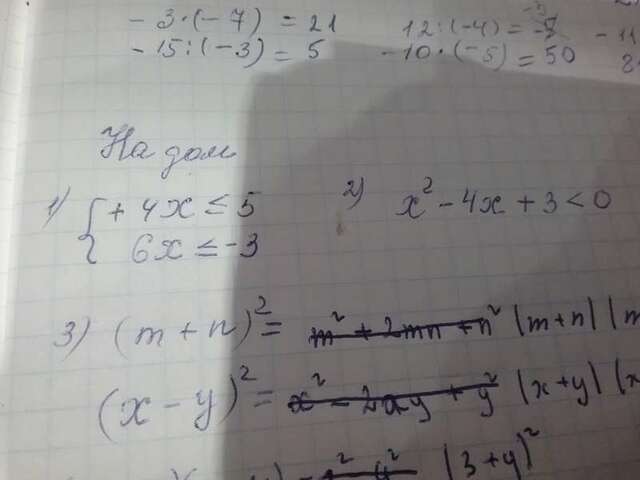 - 3·(-7) = 21 12:(-4) = -3 - 11
- 15:(-3) = 5 - 10·(-5) = 50
На дом
1) { + 4x ≤ 5 2) x² - 4x + 3 < 0
6x ≤ -3
3) (m + n)² = m² + 2mn + n² (m+n) (m
(x - y)² = x² - 2xy + y² (x+y) (x
(3+y)²